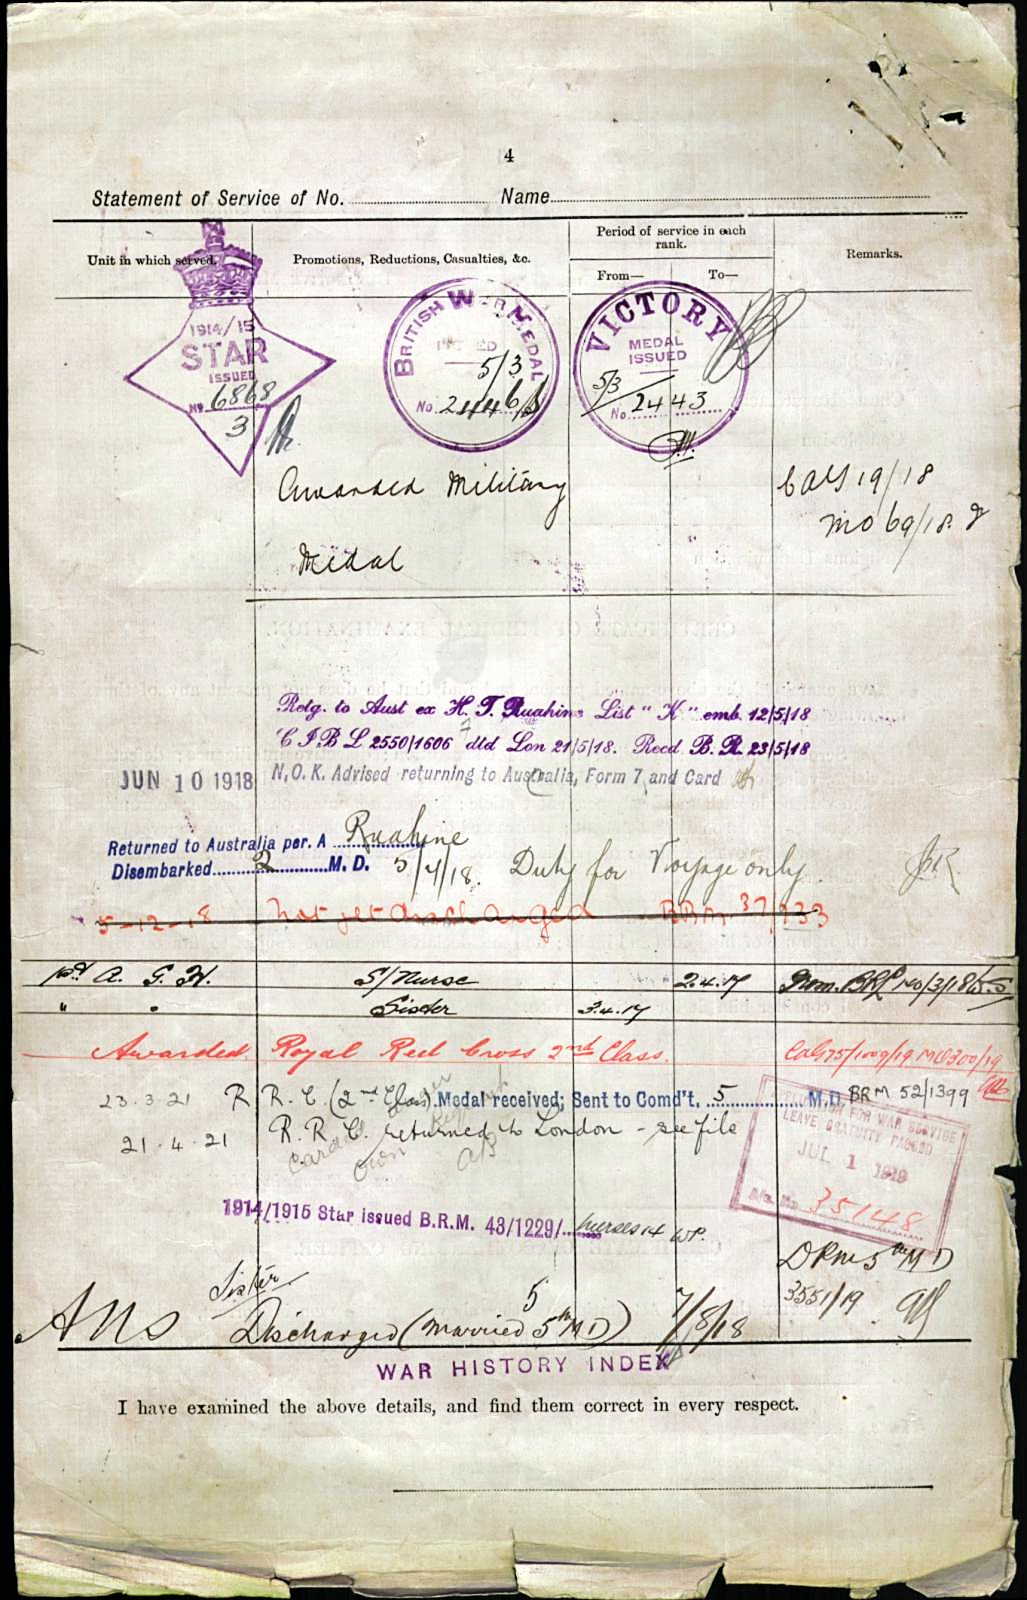 4
Statement of Service of No. Name
Unit in which served. Promotions, Reductions, Casualties, &c. Period of service in each rank. From— To— Remarks.
1914/15 STAR ISSUED No. 6868 3
BRITISH WAR MEDAL ISSUED 5/3 No.
VICTORY MEDAL ISSUED 5/3 No. 2443
Awarded Military CAG 19/18
MO 69/18
Medal
Retg. to Aust ex H. T. Ruahine List "K" emb. 12/5/18
C I B L 2550/1606 dtd Lon 21/5/18. Recd. B. R. 23/5/18
JUN 10 1918 N.O.K. Advised returning to Australia, Form 7 and Card
Returned to Australia per. A Ruahine
Disembarked 2 M. D. 5/4/18. Duty for Voyage only.
5-12-18 Not yet discharged BRM 37/233
A. G. H. S/Nurse 2.4.17 From BRL
" " Sister 3.4.17
Awarded Royal Red Cross 2nd Class. CAG 75/1009/19 MO 300/19
23.3.21 R R. C. (2nd Class). Medal received; Sent to Comd't. 5 M.D. BRM 52/1399
21.4.21 R. R. C. returned to London - see file
Card
own
FOR WAR SERVICE
LEAVE GRATUITY PASSED
JUL 1 1919
No 35148
1914/1915 Star issued B.R.M. 43/1229/ Nurses 14 WP.
DRM 5th M D
3551/19
Sister
5
ANS Discharged (Married 5th M D) 7/8/18
WAR HISTORY INDEX
I have examined the above details, and find them correct in every respect.